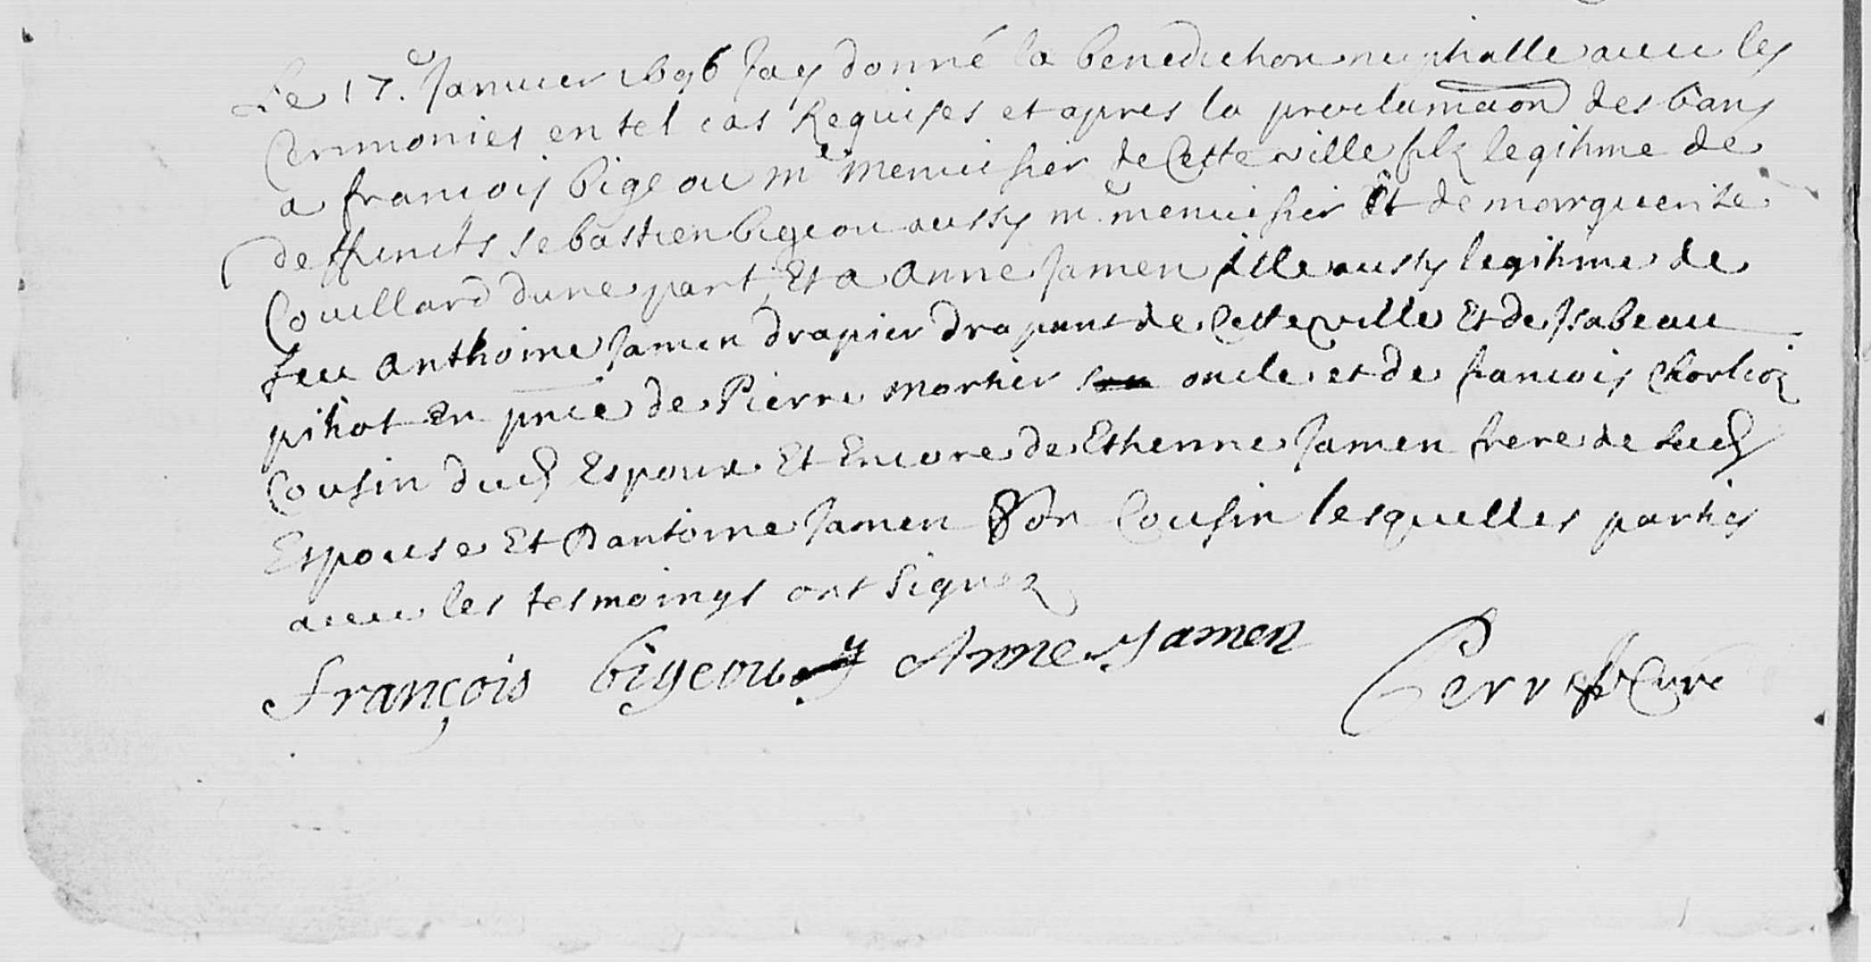 Le 17.e Januier 1696 Jay donné la benediction nuptialle auec les
Ceremonies en tel cas Requises et apres la proclamaon des bans
a francois bigeou me menuisier de Cette ville filz legitime de
deffuncts sebastien bigeou aussy me menuisier Et de marguerite
Couillard dune part, Et a anne Jamen fille aussy legitime de
feu anthoine Jamen drapier drapant de Cette ville Et de Jsabeau
pihot En pnce de Pierre mortier oncle et de francois
Cousin dud Espoux Et Encore de Estienne Jamen frere de lad
Espouse Et Dantoine Jamen Son Cousin lesquelles parties
auec les tesmoings ont signez
François bigeou Anne Jamen Curé